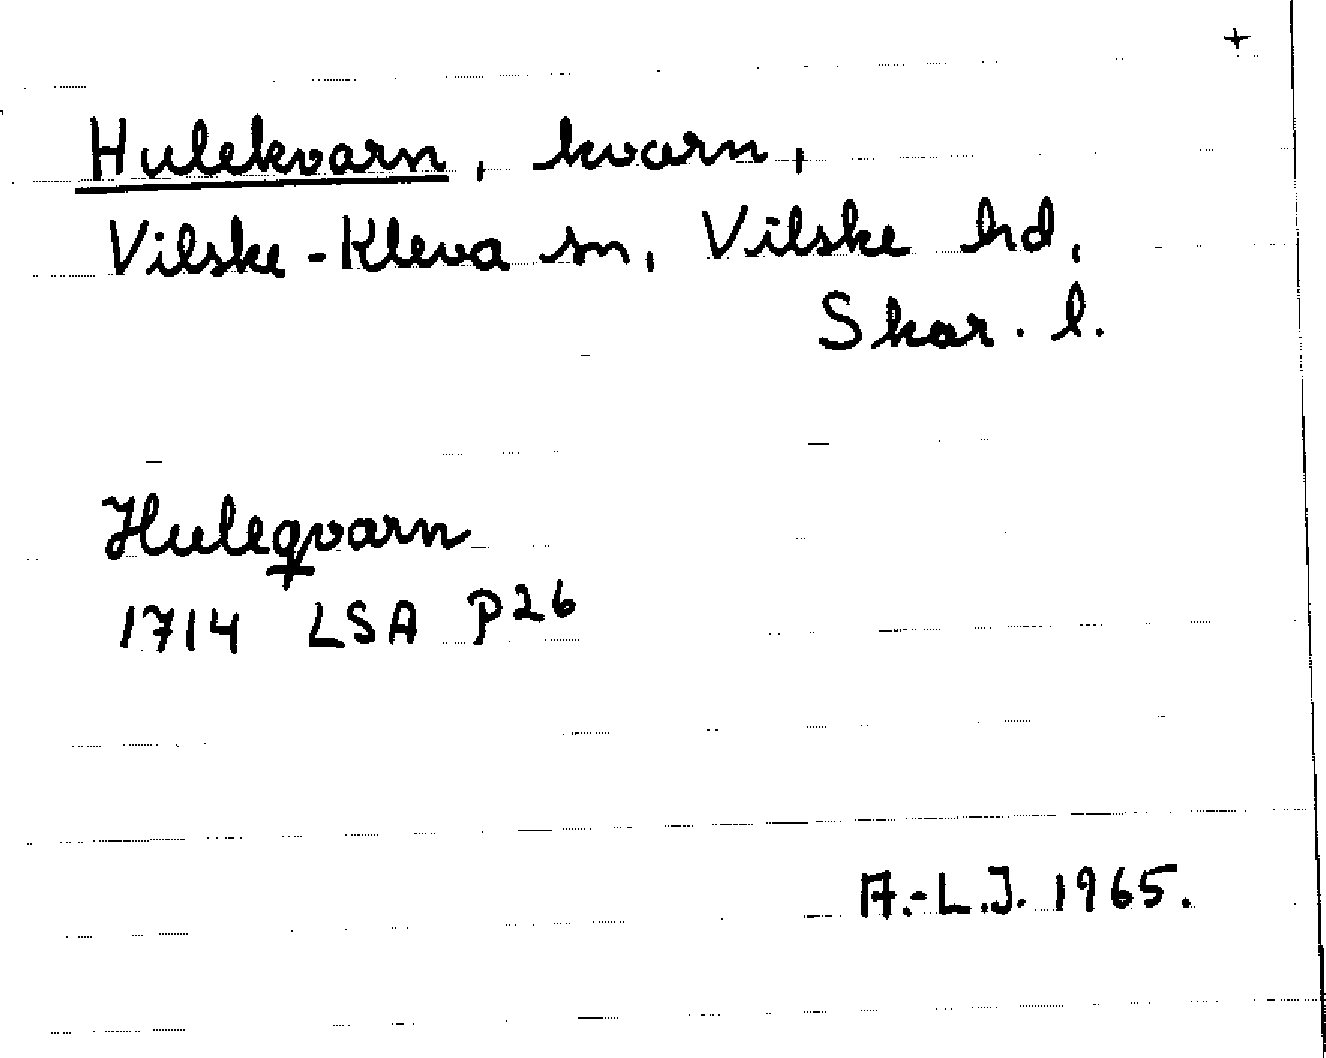 +
Hulekvarn, kvarn,
Vilske-Kleva sn, Vilske hd,
Skar. l.
Huleqvarn
1714 LSA P26
A.-L.J. 1965.